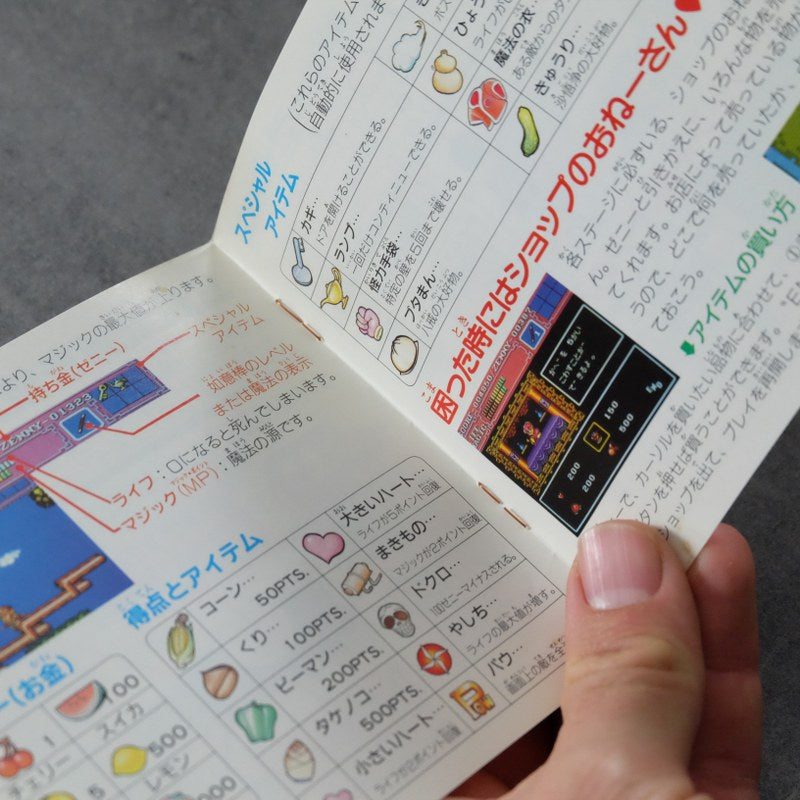 より、マジックの最大値が上ります。
持ち金(ゼニー)
スペシャル
アイテム
如意棒のレベル
または魔法の表示
ライフ：0になると死んでしまいます。
マジック(MP)：魔法の源です。
得点とアイテム
コーン…
50PTS.
くり…
100PTS.
ピーマン…
200PTS.
タケノコ…
500PTS.
小さいハート…
ライフが2ポイント回復
大きいハート…
ライフが5ポイント回復
まきもの…
マジックが2ポイント回復
ドクロ…
やしち…
ライフの最大値が増す。
パウ…
ー(お金)
1
チェリー
100
スイカ
5
500
レモン
これらのアイテム
自動的に使用されま
スペシャル
アイテム
カギ…
ドアを開けることができる。
ランプ…
一回だけコンティニューできる。
怪力手袋…
特定の壁を5回まで壊せる。
ブタまん…
八戒の大好物。
魔法の衣…
ある敵からのダ
きゅうり…
沙悟浄の大好物。
困った時にはショップのおねーさん♥
各ステージに必ずいる、ショップのおね
ん。ゼニーと引きかえに、いろんな物を売
てくれます。お店によって売っている物が
うので、どこで何を売っていたか、
ておこう。
アイテムの買い方
ーで、カーソルを買いたい品物に合わせて、
タンを押せば買うことができます。
ショップを出て、プレイを再開しま
ZENNY 01323
150
500
200
200
END